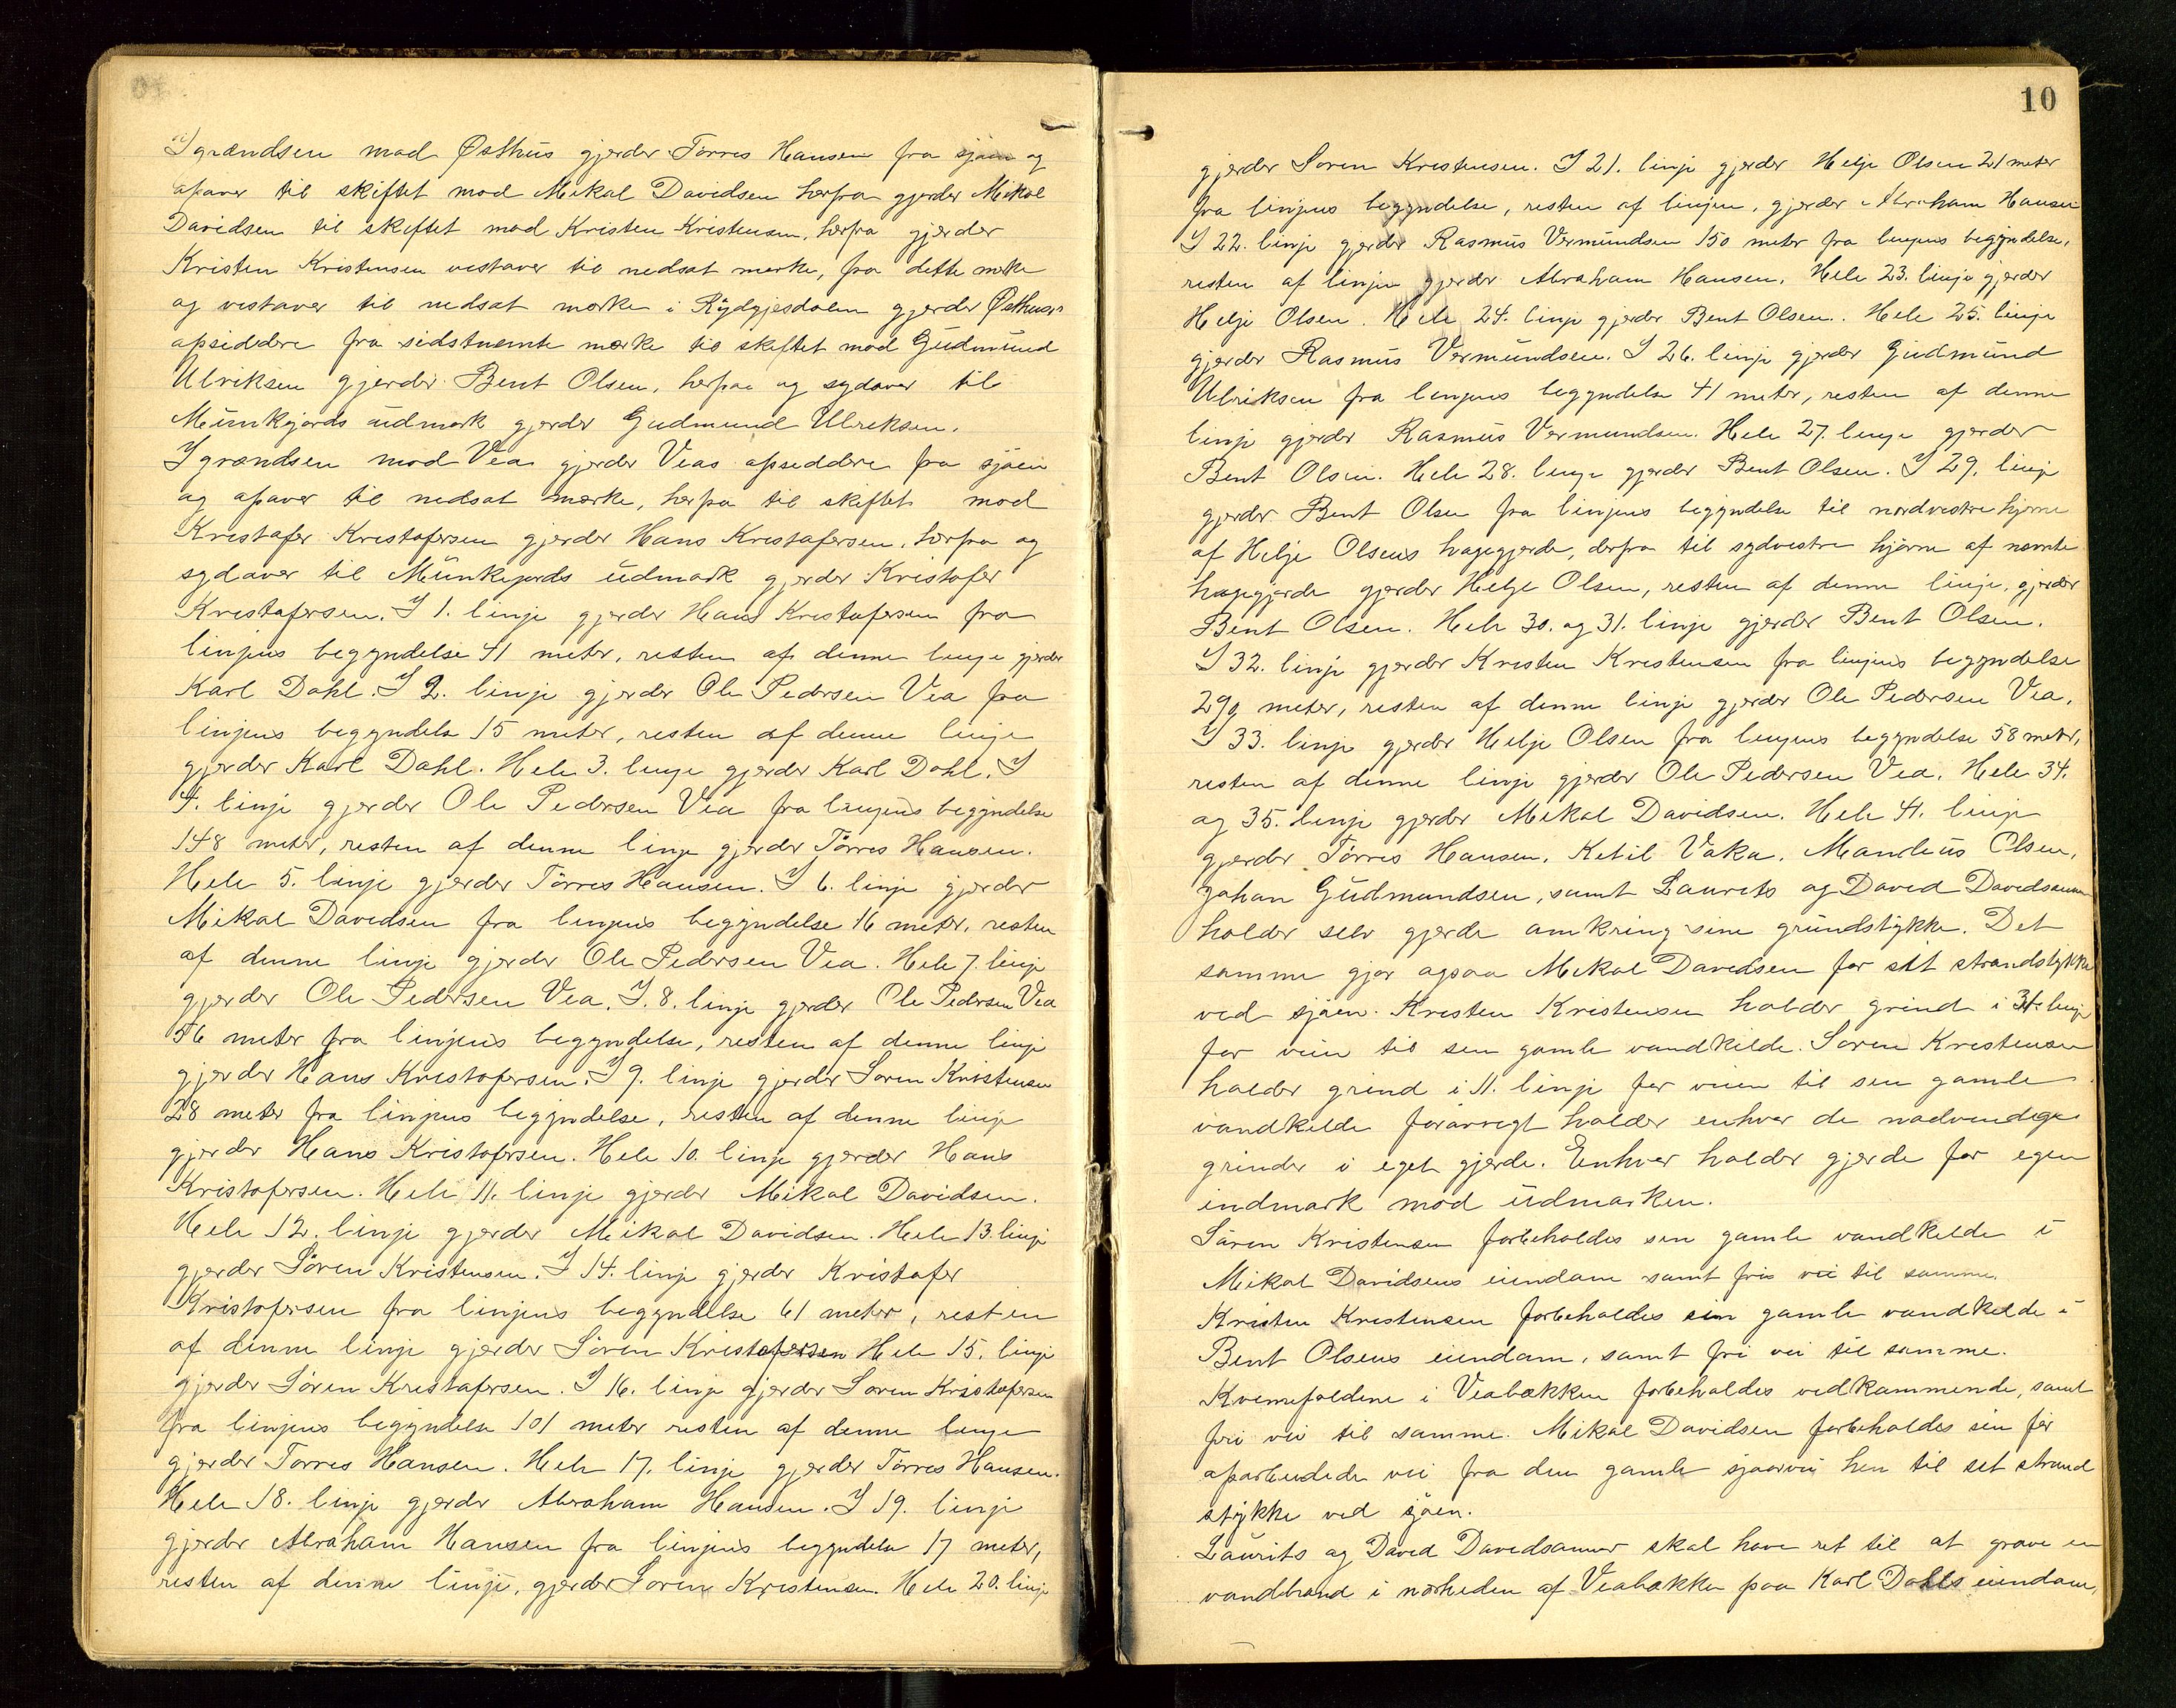 I grændsen mod Østhus gjerder Törres Hansen fra sjöen og
opover til skiftet mod Mikal Davidsen herfra gjerder Mikal
Davidsen til skiftet mod Kristen Kristensen, herfra gjerder
Kristen Kristensen vestover til nedsat merke, fra dette merke
og vestover til nedsat merke i Rydgjesdalen gjerder Østhus's
opsiddere fra sidstnævnte mærke til skiftet mod Gudmund
Ulriksen gjerder Bent Olsen, herfra og sydover til
Munkejords udmark gjerder Gudmund Ulreksen.
I grændsen mod Vea gjerder Veas opsiddere fra sjöen
og opover til nedsat mærke, herfra til skiftet mod
Kristofer Kristofersen gjerder Hans Kristofersen, herfra og
sydover til Munkejords udmark gjerder Kristofer
Kristofersen. I 1. linje gjerder Hans Kristofersen fra
linjens begyndelse 41 meter, resten af denne linje gjerder
Karl Dahl. I 2. linje gjerder Ole Pedersen Vea fra
linjens begyndelse 15 meter, resten af denne linje
gjerder Karl Dahl. Hele 3. linje gjerder Karl Dahl. I
4. linje gjerder Ole Pedersen Vea fra linjens begyndelse
148 meter, resten af denne linje gjerder Törres Hansen.
Hele 5. linje gjerder Törres Hansen. I 6. linje gjerder
Mikal Davidsen fra linjens begyndelse 16 meter, resten
af denne linje gjerder Ole Pedersen Vea. Hele 7. linje
gjerder Ole Pedersen Vea. I 8. linje gjerder Ole Pedersen Vea
56 meter fra linjens begyndelse, resten af denne linje
gjerder Hans Kristofersen. I 9. linje gjerder Sören Kristensen
28 meter fra linjens begyndelse, resten af denne linje
gjerder Hans Kristofersen. Hele 10. linje gjerder Hans
Kristofersen. Hele 11. linje gjerder Mikal Davidsen.
Hele 12. linje gjerder Mikal Davidsen. Hele 13. linje
gjerder Sören Kristensen. I 14. linje gjerder Kristofer
Kristofersen fra linjens begyndelse 61 meter, resten
af denne linje gjerder Sören Kristofersen Hele 15. linje
gjerder Sören Kristofersen. I 16. linje gjerder Sören Kristofersen
fra linjens begyndelse 101 meter resten af denne linje
gjerder Törres Hansen. Hele 17. linje gjerder Törres Hansen.
Hele 18. linje gjerder Abraham Hansen. I 19. linje
gjerder Abraham Hansen fra linjens begyndelse 17 meter,
resten af denne linje, gjerder Sören Kristensen. Hele 20. linje
10
gjerder Sören Kristensen. I 21. linje gjerder Helje Olsen 21 meter
fra linjens begyndelse, resten af linjen, gjerder Abraham Hansen
I 22. linje gjerder Rasmus Vermundsen 150 meter fra linjens begyndelse,
resten af linjen gjerder Abraham Hansen. Hele 23. linje gjerder
Helje Olsen. Hele 24. linje gjerder Bent Olsen. Hele 25. linje
gjerder Rasmus Vermundsen. I 26. linje gjerder Gudmund
Ulriksen fra linjens begyndelse 41 meter, resten af denne
linje gjerder Rasmus Vermundsen. Hele 27. linje gjerder
Bent Olsen. Hele 28. linje gjerder Bent Olsen. I 29. linje
gjerder Bent Olsen fra linjens begyndelse til nordvestre hjörne
af Helje Olsens havegjerde, derfra til sydvestre hjörne af nævnte
havegjerde gjerder Helje Olsen, resten af denne linje, gjerder
Bent Olsen. Hele 30. og 31. linje gjerder Bent Olsen.
I 32. linje gjerder Kristen Kristensen fra linjens begyndelse
290 meter, resten af denne linje gjerder Ole Pedersen Vea.
I 33. linje gjerder Helje Olsen fra linjens begyndelse 58 meter,
resten af denne linje gjerder Ole Pedersen Vea. Hele 34.
og 35. linje gjerder Mikal Davidsen. Hele 41. linje
gjerder Törres Hansen, Ketil Vaka, Mandius Olsen,
Johan Gudmundsen, samt Laurits og David Davidsønner
holder selv gjerde omkring sine grundstykke. Det
samme gjør ogsaa Mikal Davidsen for sit strandstykke
ved sjöen. Kristen Kristensen holder grind i 31. linje
for veien til sen gamle vandkilde. Sören Kristensen
holder grind i 11. linje for veien til sen gamle
vandkilde forövrigt holder enhver de nødvendige
grinder i eget gjerde. Enhver holder gjerde for egen
indmark mod udmarken.
Sören Kristensen forbeholdes sin gamle vandkelde i
Mikal Davidsens eiendom samt fri vei til samme.
Kristen Kristensen forbeholdes sin gamle vandkelde i
Bent Olsens eiendom, samt fri vei til samme.
Kvernefoldene i Veabækken forbeholdes vedkommende, samt
fri vei til samme. Mikal Davidsen forbeholdes sin för
oparbeidede vei fra den gamle sjøvei hen til set strand
stykke ved sjöen.
Laurits og David Davidsønner skal have ret til at grave en
vandbrønd i nærheden af Veabækken paa Karl Dahls eiendom,